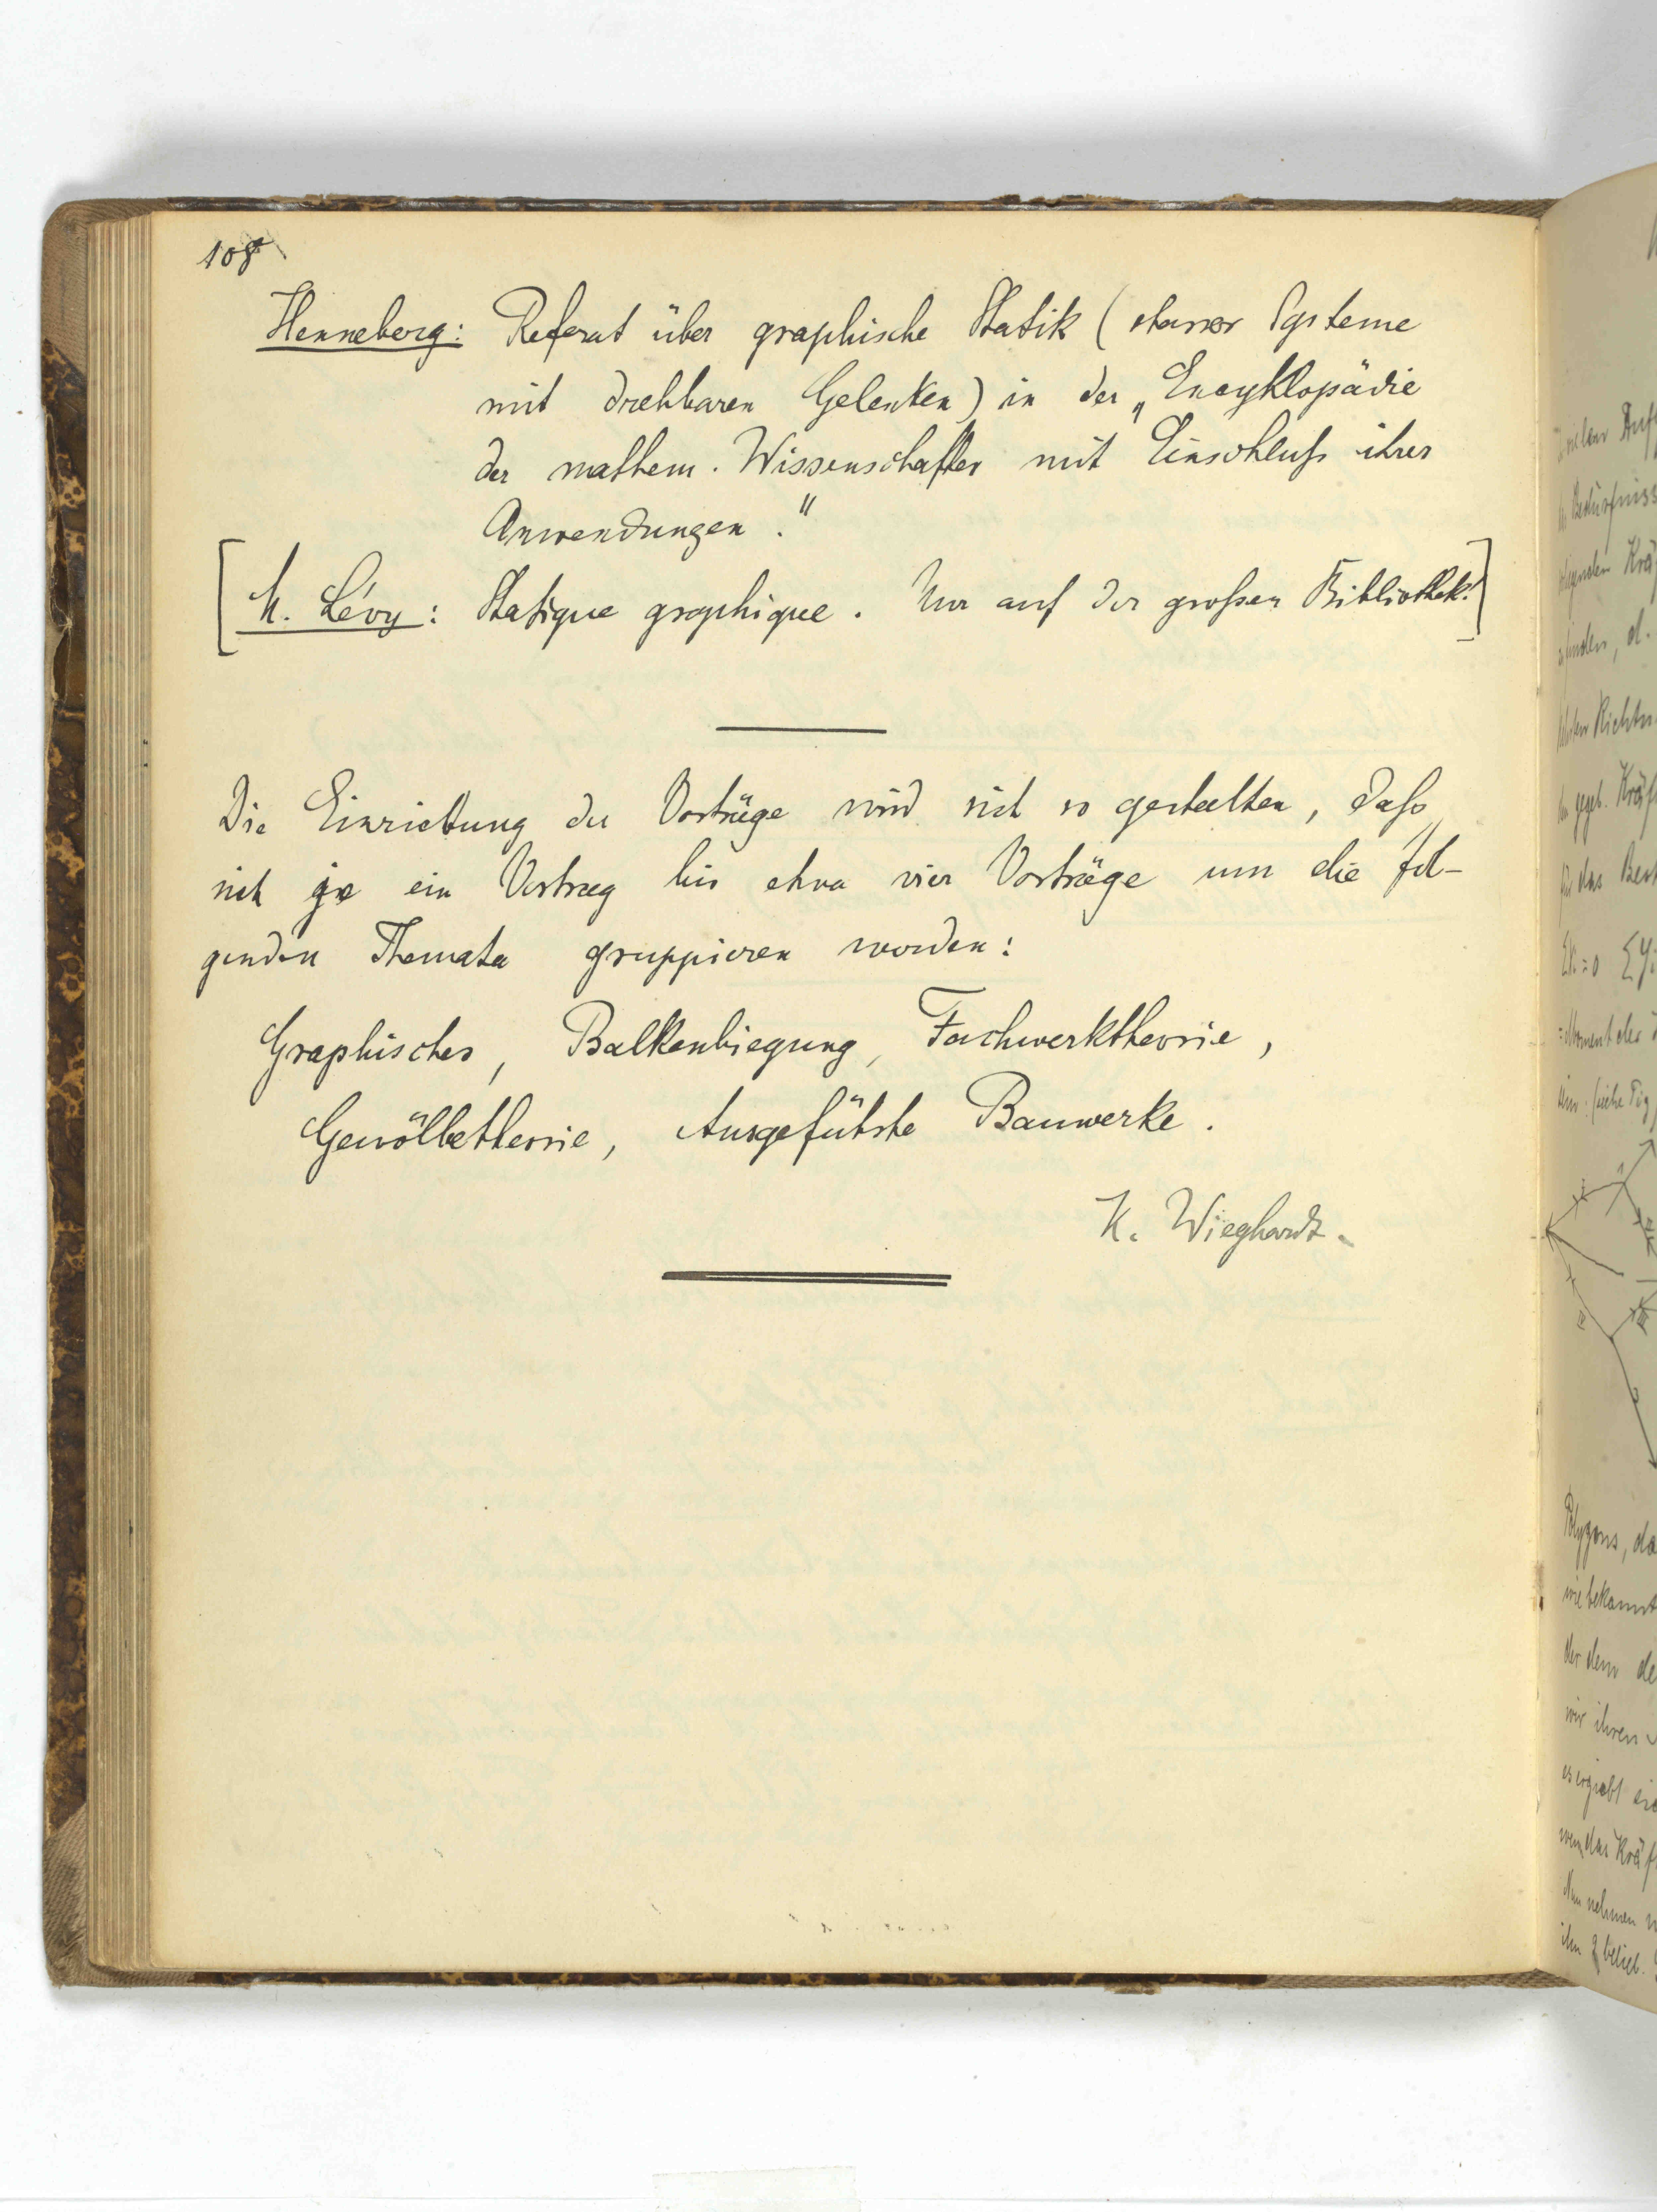 108
Henneberg: Referat über graphische Statik (starrer Systeme
mit drehbaren Gelenken) in der „Encyklopädie
der mathem. Wissenschaften mit Einschluß ihrer
Anwendungen."
[M. Lévy: Statique graphique. Nur auf der großen Bibliothek!]
Die Einrichtung der Vorträge wird sich so gestalten, daß
sich je ein Vortrag bis etwa vier Vorträge um die fol-
genden Themata gruppieren werden:
Graphisches, Balkenbiegung, Fachwerktheorie,
Gewölbetheorie, Ausgeführte Bauwerke.
K. Wieghardt.
Bedürfniss
Richtu
gegeb. Kräf
für das Best
Moment der
(siehe Fig
Polygons, da
wie bekannt
der dem de
wir ihren
es ergiebt sic
das Kräf
nehmen
belieb.